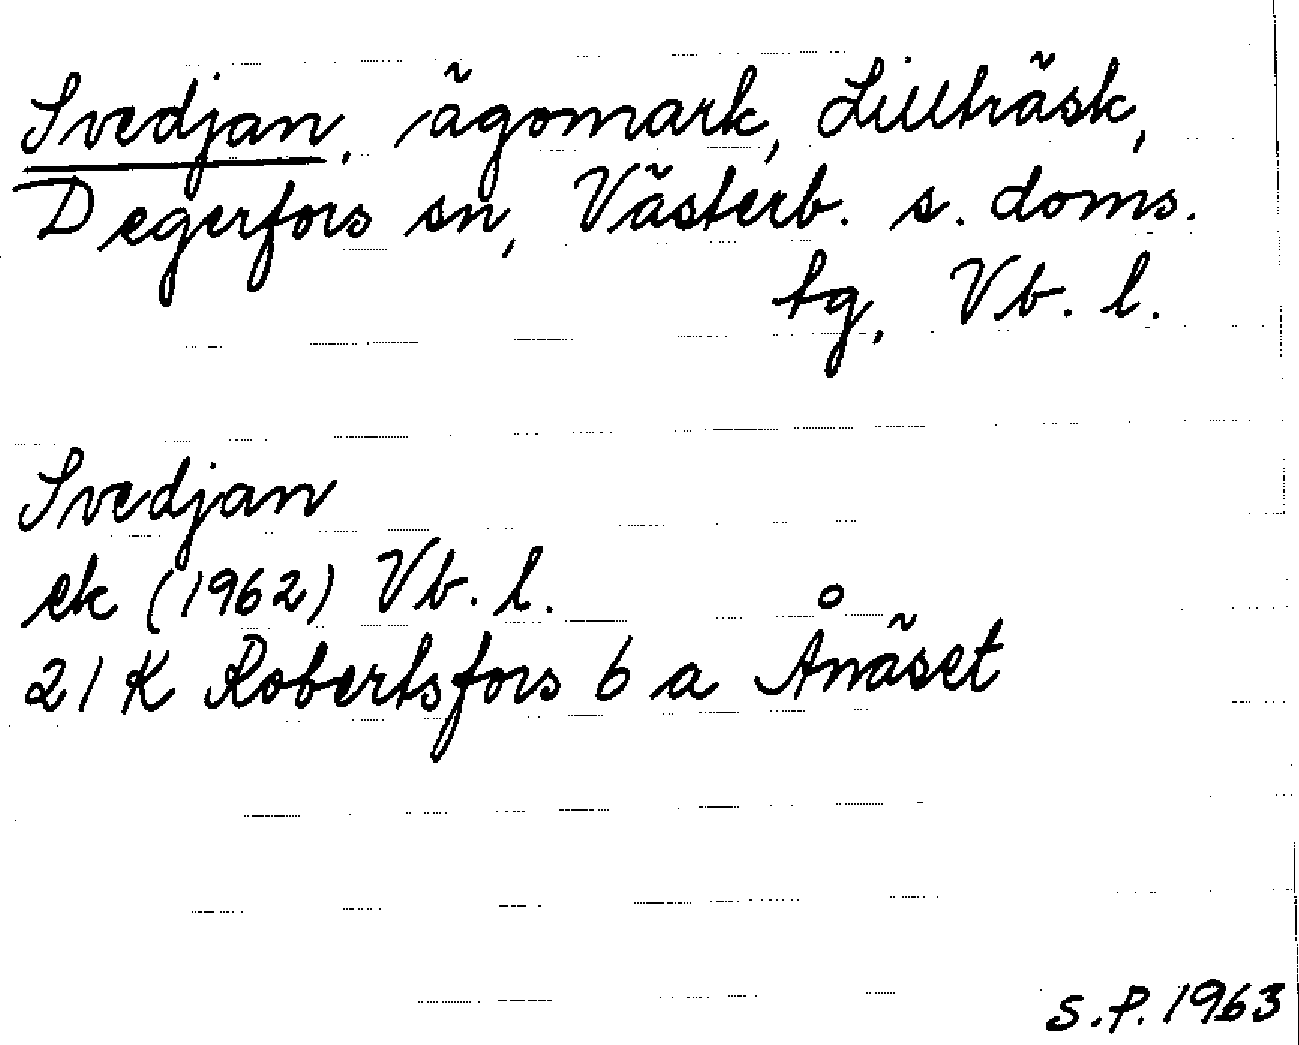 Svedjan, ägomark, Lillträsk,
Degerfors sn, Västerb. s. doms.
tg, Vb. l.
Svedjan
ek (1962) Vb. l.
21 K Robertsfors 6 a Ånäset
S.P. 1963